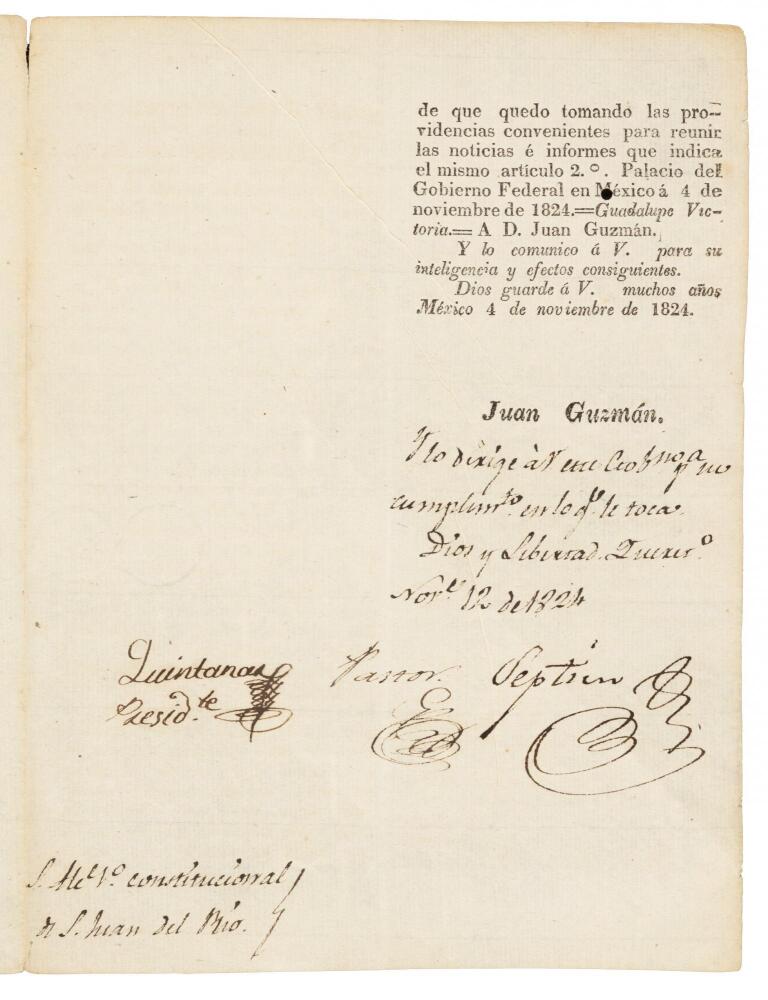 de que quedo tomando las pro-
videncias convenientes para reunir
las noticias é informes que indica
el mismo artículo 2.º. Palacio del
Gobierno Federal en México á 4 de
noviembre de 1824.=Guadalupe Vic-
toria.= A D. Juan Guzmán.
Y lo comunico á V. para su
inteligencia y efectos consiguientes.
Dios guarde á V. muchos años
México 4 de noviembre de 1824.
Juan Guzmán.
Y lo dirige à V este Gobno pa su
cumplimto. en lo qe. le toca.
Dios y Libertad. Queret.o
Nove. 12 de 1824
Quintanar
Presid.te
Pastor.
Septien
S. Alc.e 1.o constitucional
de S. Juan del Rio.